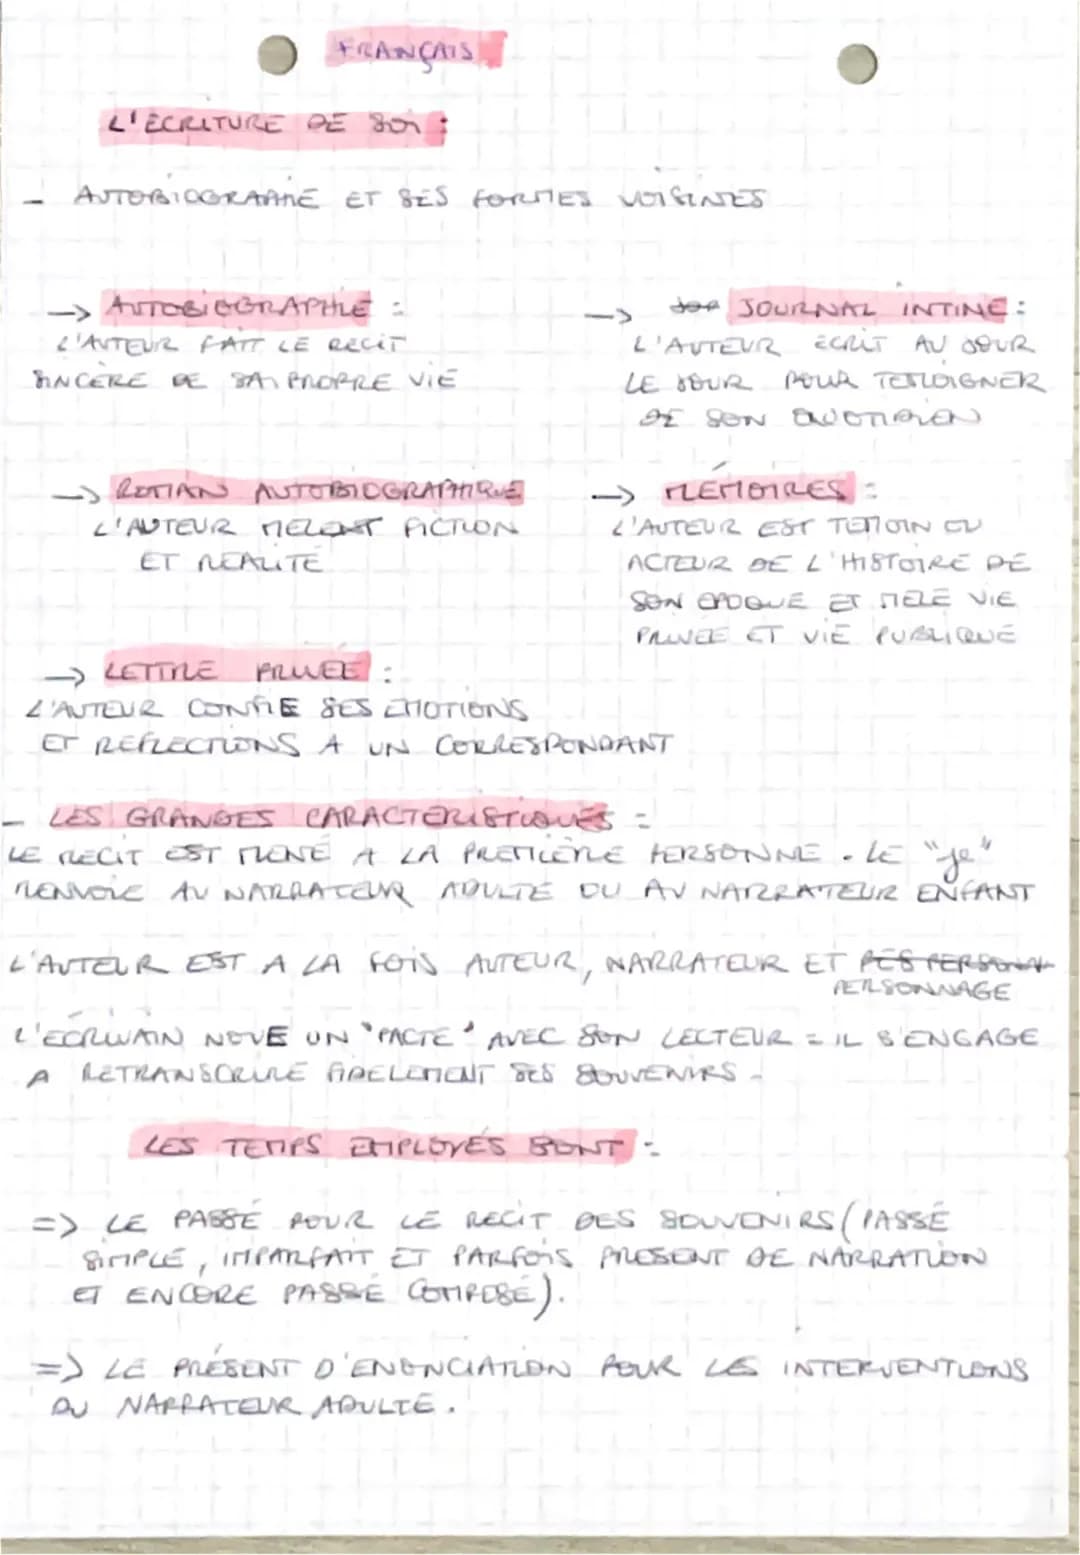 FRANÇAIS
L'ÉCRITURE DE SOI :
- AUTOBIOGRAPHIE ET SES FORMES VOISINES
-> AUTOBIOGRAPHIE :
L'AUTEUR FAIT LE RECIT
SINCÈRE DE SA PROPRE VIE
-> JOURNAL INTIME :
L'AUTEUR ECRIT AU JOUR
LE JOUR POUR TEMOIGNER
DE SON QUOTIDIEN
-> ROMAN AUTOBIOGRAPHIQUE
L'AUTEUR MELENT FICTION
ET REALITÉ
-> MÉMOIRES :
L'AUTEUR EST TEMOIN OU
ACTEUR DE L'HISTOIRE DE
SON EPOQUE ET MELE VIE
PRIVEE ET VIE PUBLIQUE
-> LETTRE PRIVÉE :
L'AUTEUR CONFIE SES EMOTIONS
ET REFLECTIONS A UN CORRESPONDANT
- LES GRANDES CARACTERISTIQUES :
LE RECIT EST MENÉ A LA PREMIÈRE PERSONNE. LE "je"
RENVOIE AU NARRATEUR ADULTE OU AU NARRATEUR ENFANT
L'AUTEUR EST A LA FOIS AUTEUR, NARRATEUR ET
PERSONNAGE
L'ÉCRIVAIN NOUE UN "PACTE" AVEC SON LECTEUR = IL S'ENGAGE
A RETRANSCRIRE FIDELEMENT SES SOUVENIRS -
LES TEMPS EMPLOYÉS SONT :
=> LE PASSÉ POUR LE RECIT DES SOUVENIRS (PASSÉ
SIMPLE, IMPARFAIT ET PARFOIS PRESENT DE NARRATION
ET ENCORE PASSÉ COMPOSÉ).
=> LE PRÉSENT D'ENONCIATION POUR LES INTERVENTIONS
DU NARRATEUR ADULTE.